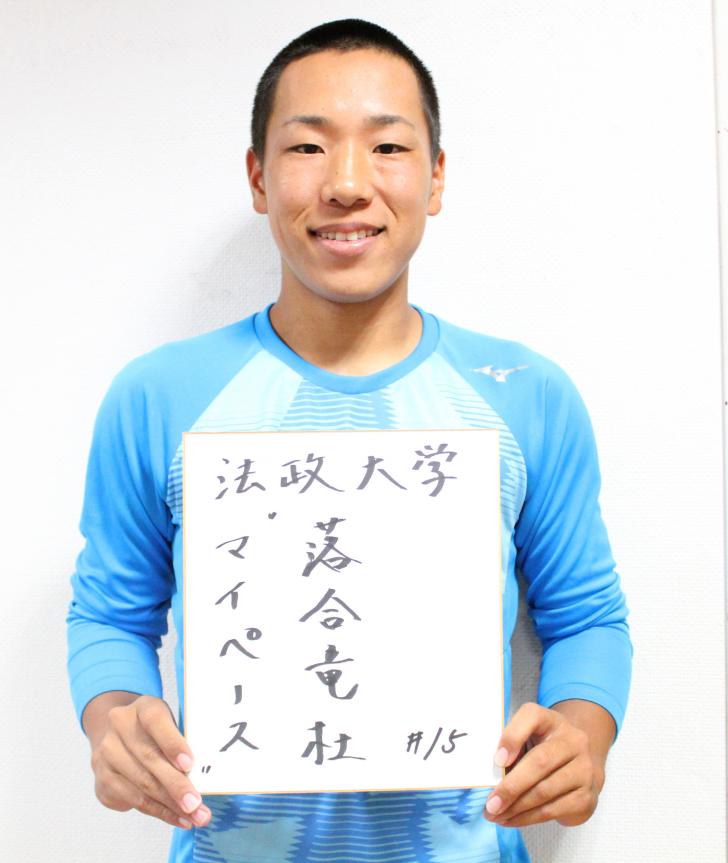 法政大学
落合竜杜
#15
"マイペース"